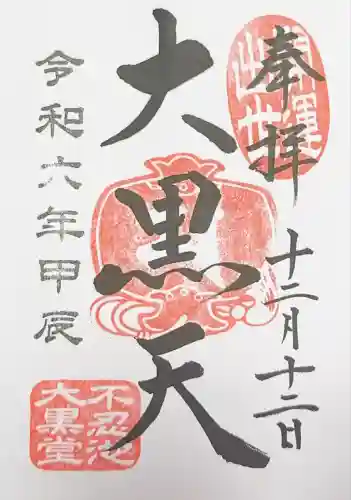 奉拝
十二月十二日
大黒天
令和六年甲辰
開運
出世
不忍池
大黒堂